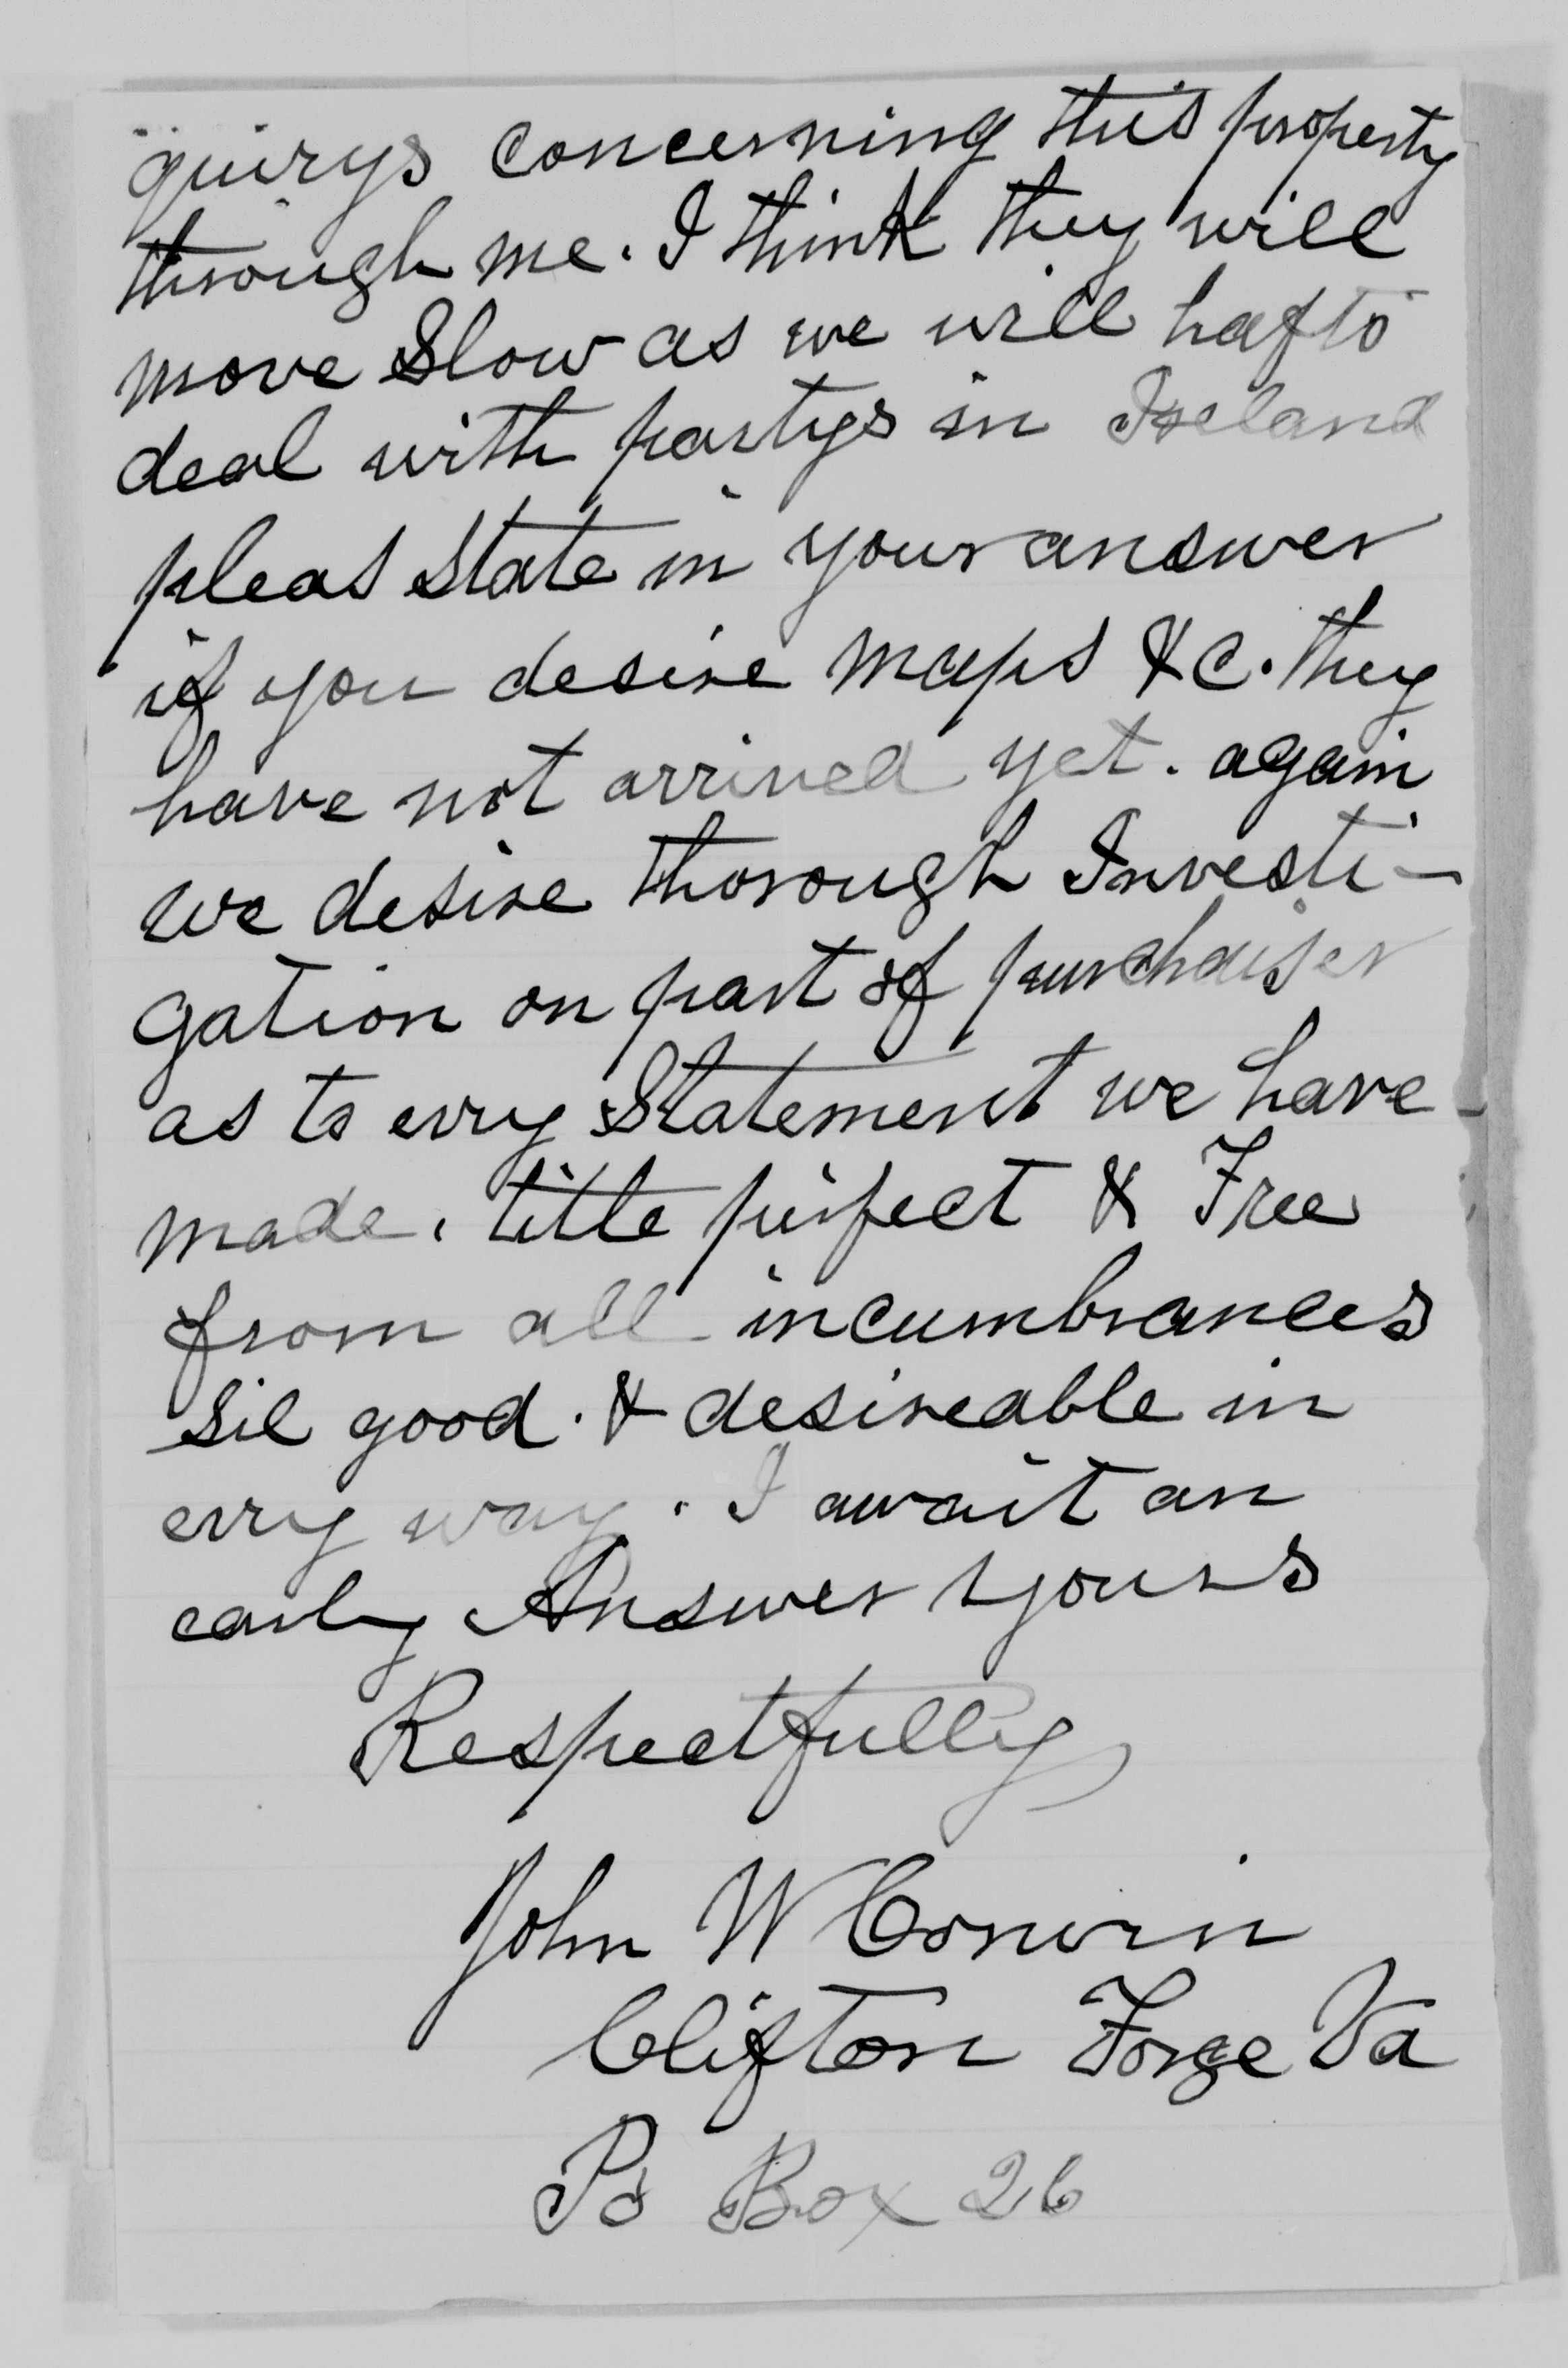 quirys concerning this property
through me. I think they will
move Slow as we will hafto
deal with partys in Ireland
pleas State in your answer
if you desire maps &c. they
have not arrived yet. again
we desire thorough Investi-
gation on part of purchaiser
as to evry Statement we have
made. title pirfect & Free
from all incumbrances
Sil good. & desireable in
evry way. I await an
early Answer yours
Respectfully
John W Corwin
Clifton Forge Va
Po Box 26